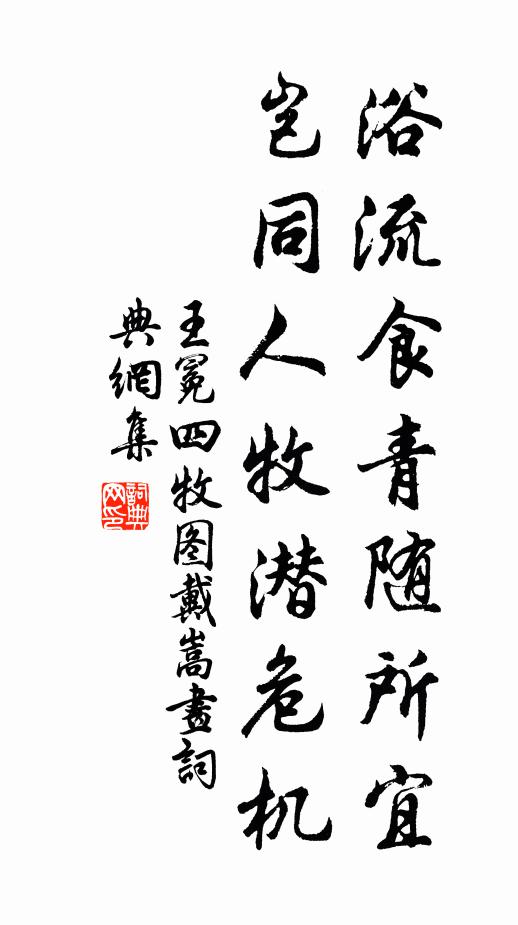 浴流食青随所宜
岂同人牧潜危机
王冕四牧图戴嵩畫詞
典網集
詞典网印